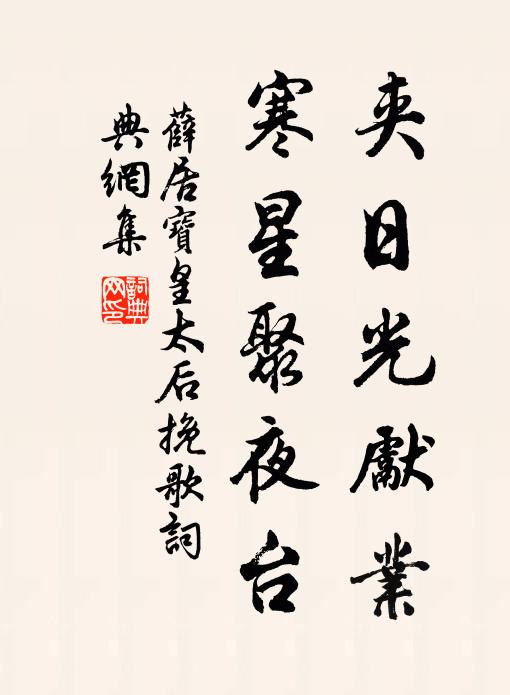 夾日光獻業
寒星聚夜台
薛居寶皇太后挽歌詞
典網集
詞典网印